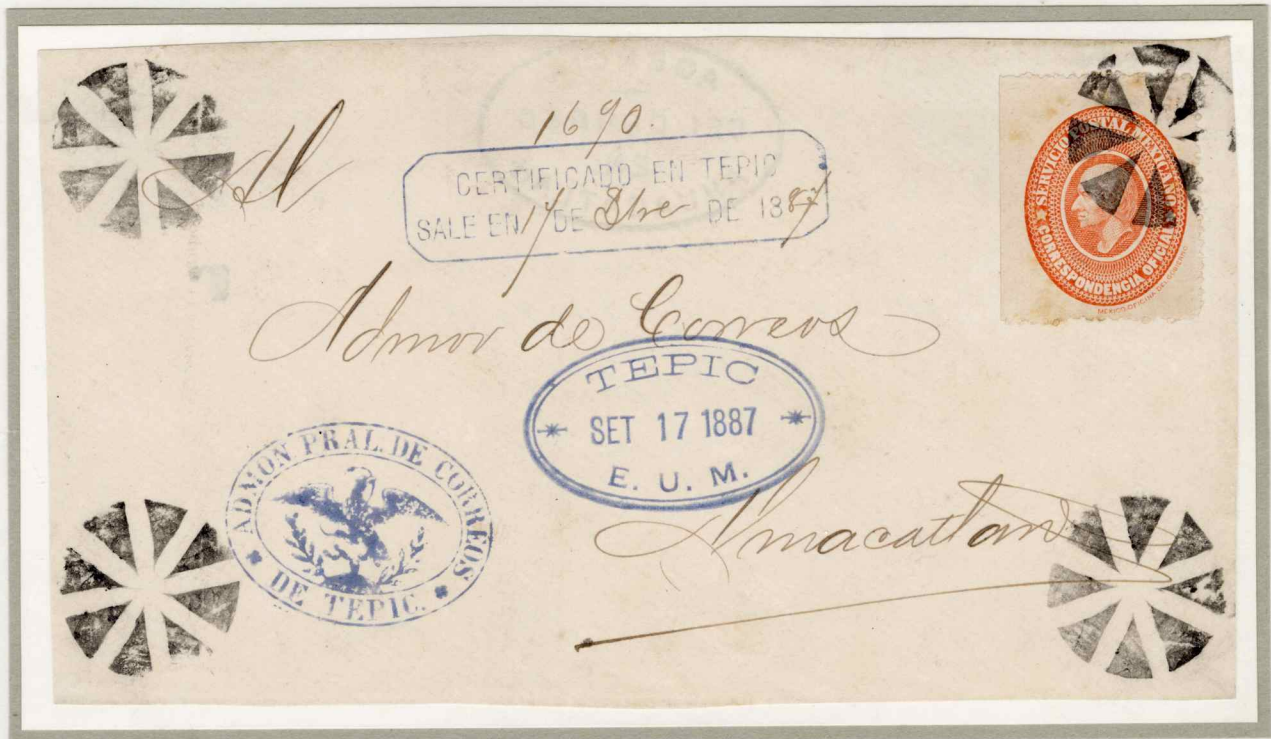 1690.
Al
CERTIFICADO EN TEPIC
SALE EN 17 DE 8bre DE 1887
SERVICIO POSTAL MEXICANO
CORRESPONDENCIA OFICIAL
Admor de Correos
TEPIC
SET 17 1887
E. U. M.
ADMON PRAL. DE CORREOS
DE TEPIC.
Amacatlan